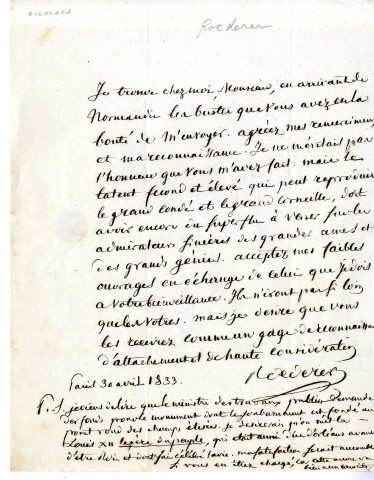 ROEDERER
Roederer
Je trouve chez moi, Monsieur, en arrivant de
Normandie les bustes que vous avez eu la
bonté de m'envoyer. agréez mes remerciements
et ma reconnaissance. Je ne méritais pas
l'honneur que vous m'avez fait : mais le
talent fécond et élevé qui peut reproduire
le grand Condé et le grand Corneille, doit
avoir encore du superflu à verser sur les
admirateurs sincères des grandes ames et
des grands génies. acceptez mes faibles
ouvrages en échange de celui que je dois
à votre bienveillance. Ils n'iront pas si loin
que les vôtres. mais je desire que vous
les receviez comme un gage de reconnaissance
d'attachement et de haute considération
Roederer
Paris 30 avril 1833.
P.S. je viens de lire que le ministre des travaux publics demande
des fonds pour le monument dont le soubassement est fondé au
rond point des champs élisées. je desirerais qu'on mit là
Louis XII le père du peuple, qui était aussi duc d'orléans avant
d'être Roi et dont j'ai célébré la vie. ma satisfaction serait au comble
si vous en étiez chargé, car cette œuvre